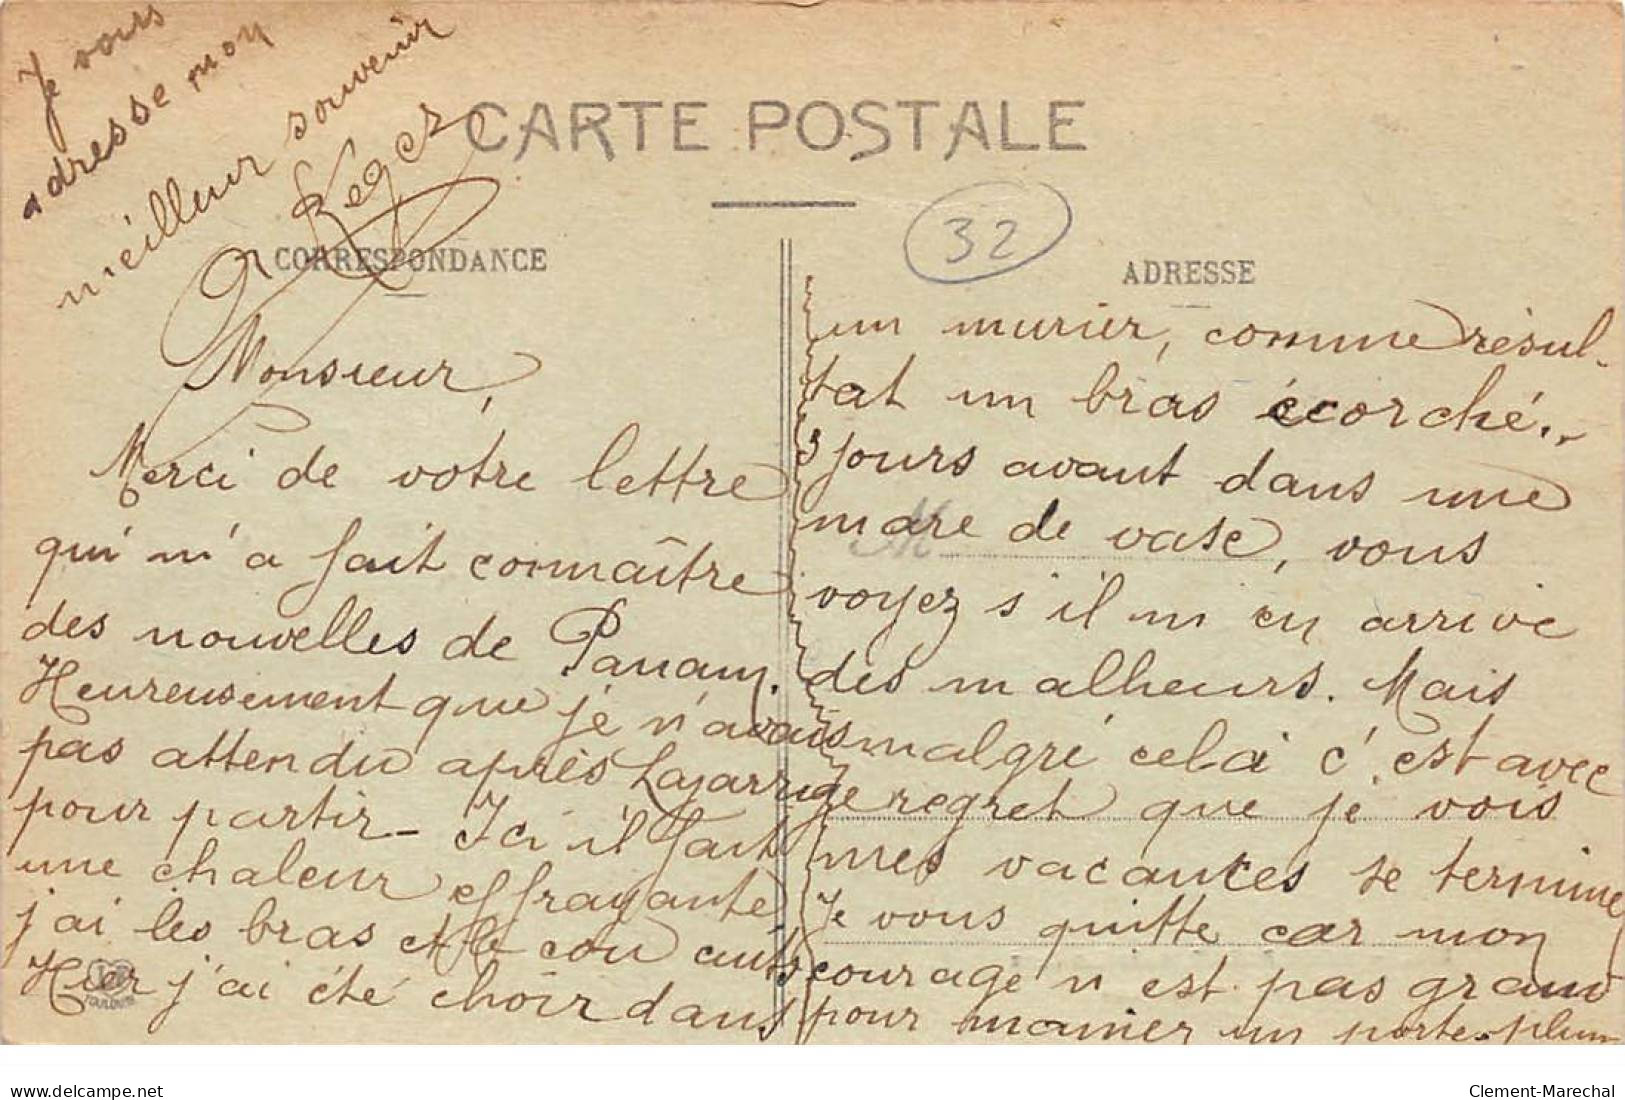 CARTE POSTALE
32
CORRESPONDANCE
ADRESSE
Monsieur,
Merci de votre lettre
qui m'a fait connaître
des nouvelles de Panam.
Heureusement que je n'avais
pas attendu après Lajarrige
pour partir - Ici il fait
une chaleur effrayante
j'ai les bras et le cou cuits
Hier j'ai été choir dans
un murier, comme résul-
tat un bras écorché..
3 jours avant dans une
mare de vase, vous
voyez s'il m'en arrive
des malheurs. Mais
malgré cela c'est avec
regret que je vois
mes vacances se termine
Je vous quitte car mon
courage n'est pas grand
pour manier un porte-plum
Je vous
adresse mon
meilleur souvenir
M
TOULOUSE
delcampe.net
Clement-Marechal